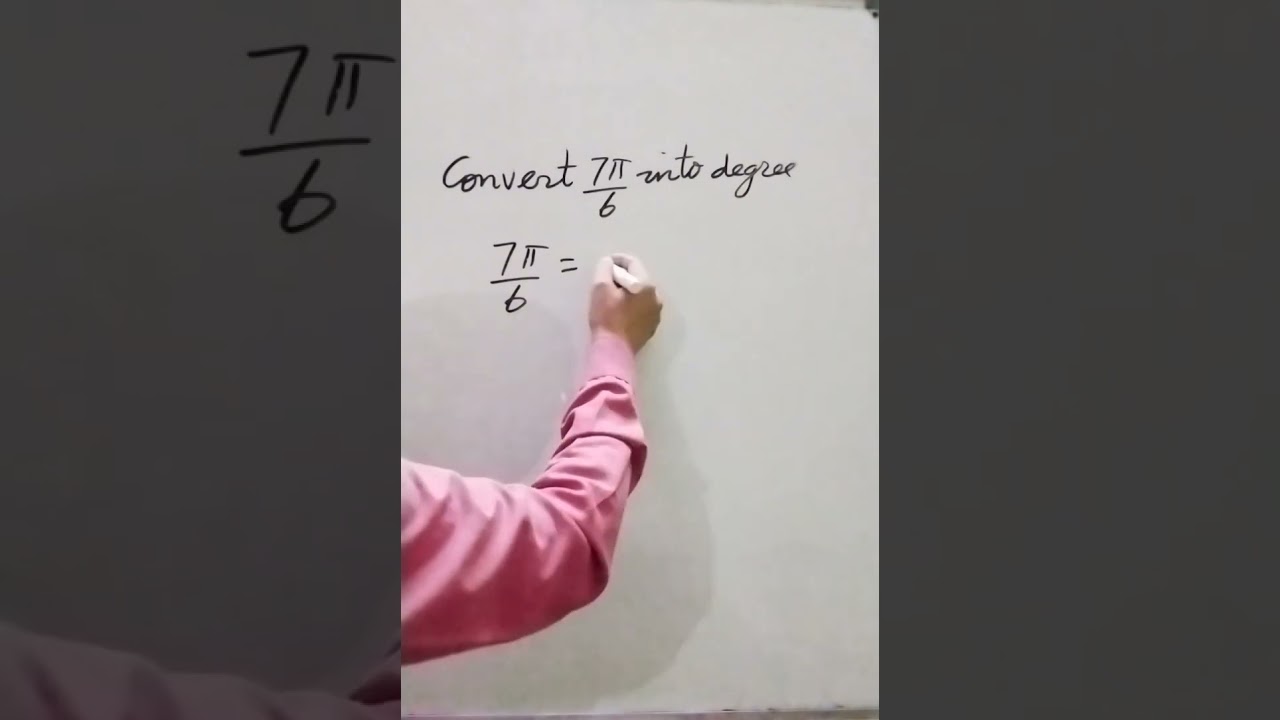 Convert 7π/6 into degree
7π/6 =